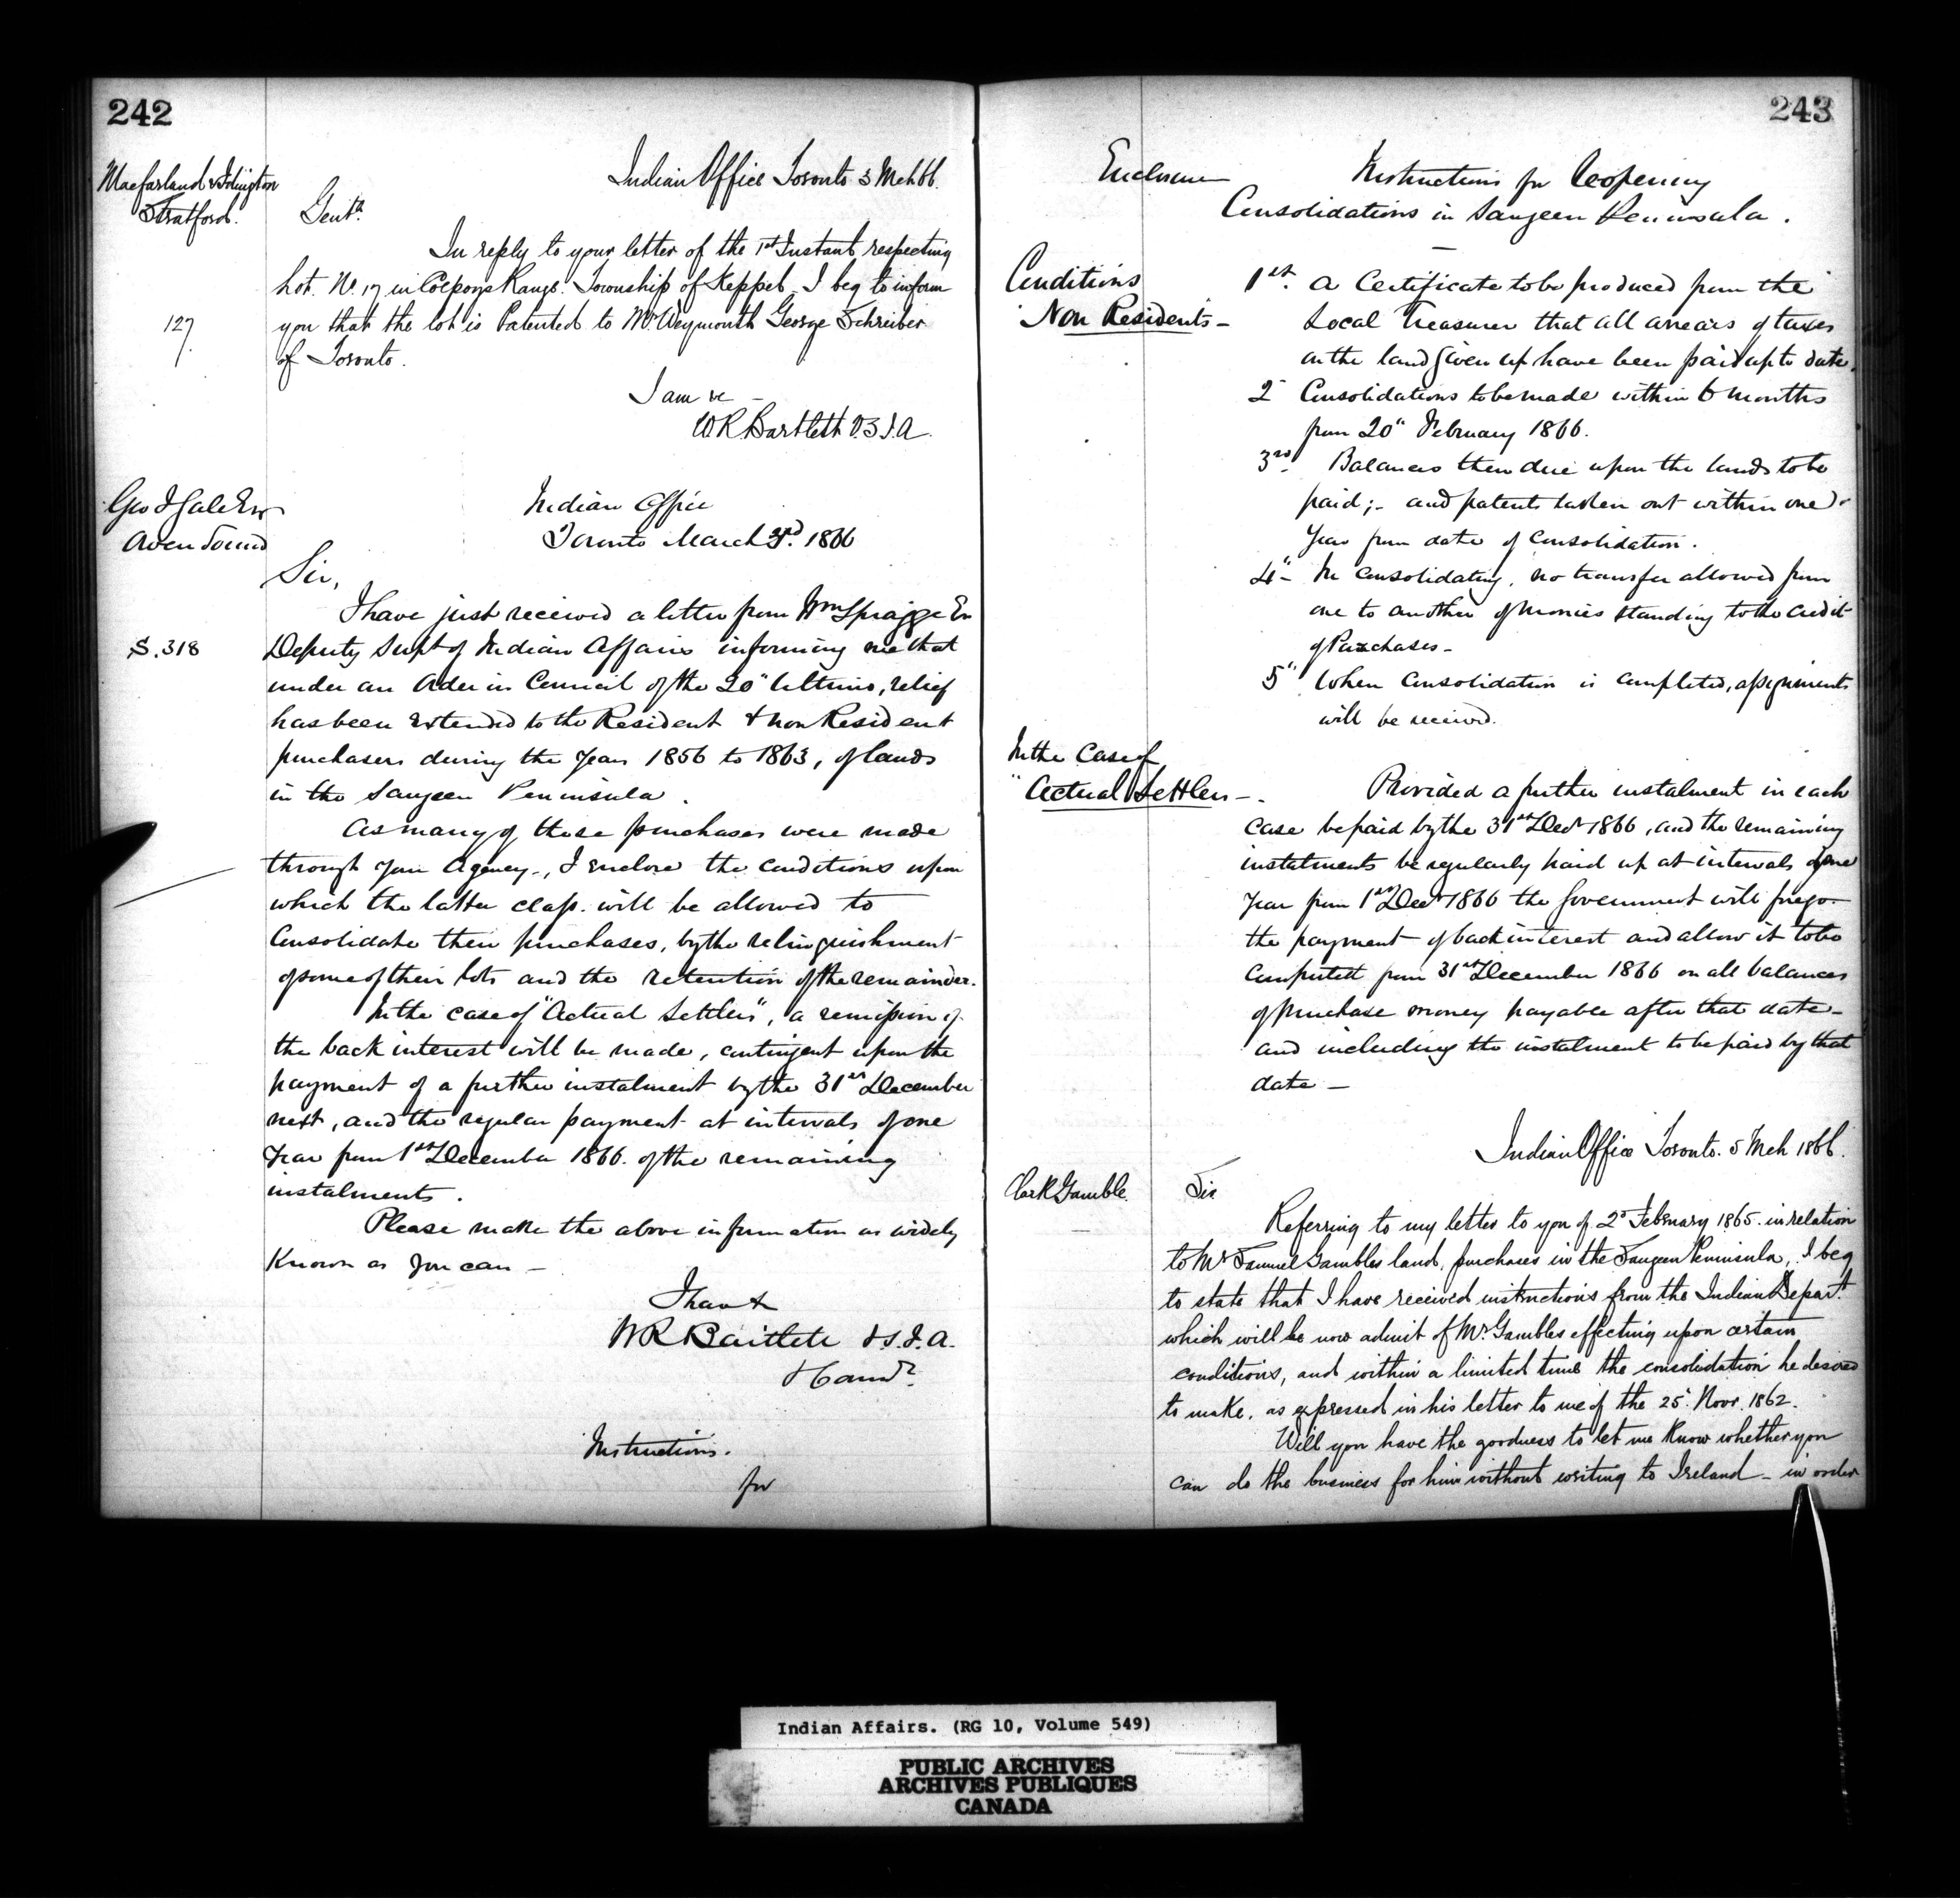 242
Macfarland & Idington
Stratford.
Indian Office Toronto 3 Mch 66.
Gentn
In reply to your letter of the 1st Instant respecting
Lot. No. 17 in Colpoys Range. Township of Keppel, I beg to inform
127
you that the lot is Patented to Mr Weymouth George Schreiber
of Toronto.
I am &c
W R Bartlett V.S.I.A.
Geo J Gale Esqr
Owen Sound
Indian Office
Toronto March 3rd. 1866
Sir,
I have just received a letter from Wm Spragge Esq
S. 318
Deputy Supt of Indian Affairs informing me that
under an Order in Council of the 20" Ultimo, relief
has been extended to the Resident & non Resident
purchasers during the years 1856 to 1863, of lands
in the Saugeen Peninsula.
As many of those purchases were made
through your Agency-, I enclose the conditions upon
which the latter class. will be allowed to
Consolidate their purchases, by the relinquishment
of some of their lots and the retention of the remainder.
In the case of "Actual Settlers", a remission of
the back interest will be made, contingent upon the
payment of a further instalment by the 31st December
next, and the regular payment at intervals of one
Year from 1st December 1866. of the remaining
instalments.
Please make the above information as widely
Known as you can -
I have &
W R Bartlett V.S.I.A.
Instructions.
for
243
Enclosure
Instructions for Reopening
Consolidations in Saugeen Peninsula.
Conditions
Non Residents -
1st. A Certificate to be produced from the
Local Treasurer that all arrears of taxes
on the land given up have been paid up to date.
2 Consolidations to be made within 6 months
from 20" February 1866.
3rd. Balances then due upon the lands to be
paid;- and patents taken out within one
Year from date of Consolidation.
4"- In consolidating, no transfer allowed from
one to another of monies standing to the credit
of Purchases-
5" When Consolidation is completed, assignments
will be received.
In the Case of
"Actual Settlers -
Provided a further instalment in each
case be paid by the 31st Decr 1866, and the remaining
instalments be regularly paid up at intervals of one
Year from 1st Decr 1866 the Government will forego
the payment of back interest and allow it to be
computed from 31st December 1866 on all balances
of purchase money payable after that date-
and including the instalment to be paid by that
date -
Indian Office Toronto. 5 Mch 1866.
Clark Gamble
Sir
Referring to my letter to you of 2d February 1865. in relation
to Mr Samuel Gambles land, purchases in the Saugeen Peninsula, I beg
to state that I have received instructions from the Indian Depart.
which will be now admit of Mr Gambles effecting upon certain
conditions, and within a limited time the consolidation he desired
to make. as expressed in his letter to me of the 25" Novr. 1862.
Will you have the goodness to let me know whether you
can do the business for him without writing to Ireland - in order
Indian Affairs. (RG 10, Volume 549)
PUBLIC ARCHIVES
ARCHIVES PUBLIQUES
CANADA